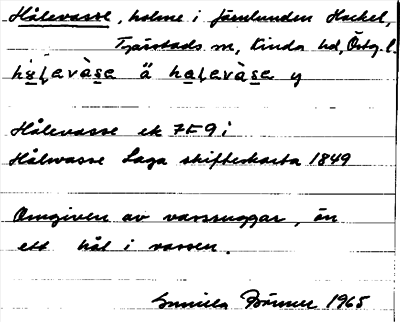 Hålevasse, holme i Järnlunden Hackel,
Tjärstads sn, Kinda hd, Östg. l.
hålevàse ä halevàse y
Hålevasse ek 7F9i
Hålwasse Laga skifteskarta 1849
Omgiven av vassruggar, än
ett hål i vassen.
Gunilla 1965